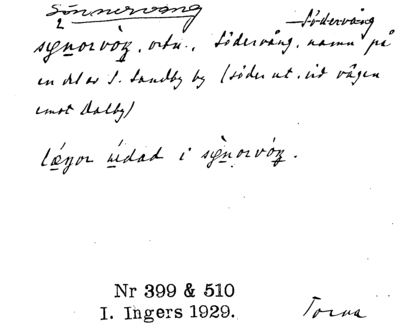 Sönnervång
Södervång
sy̲n̲orvóŋ, ortn., Södervång, namn på
en del av S. Sandby by (söder ut. vid vägen
emot Dalby)
i sy̲n̲orvóŋ.
Nr 399 & 510
I. Ingers 1929.
Torna